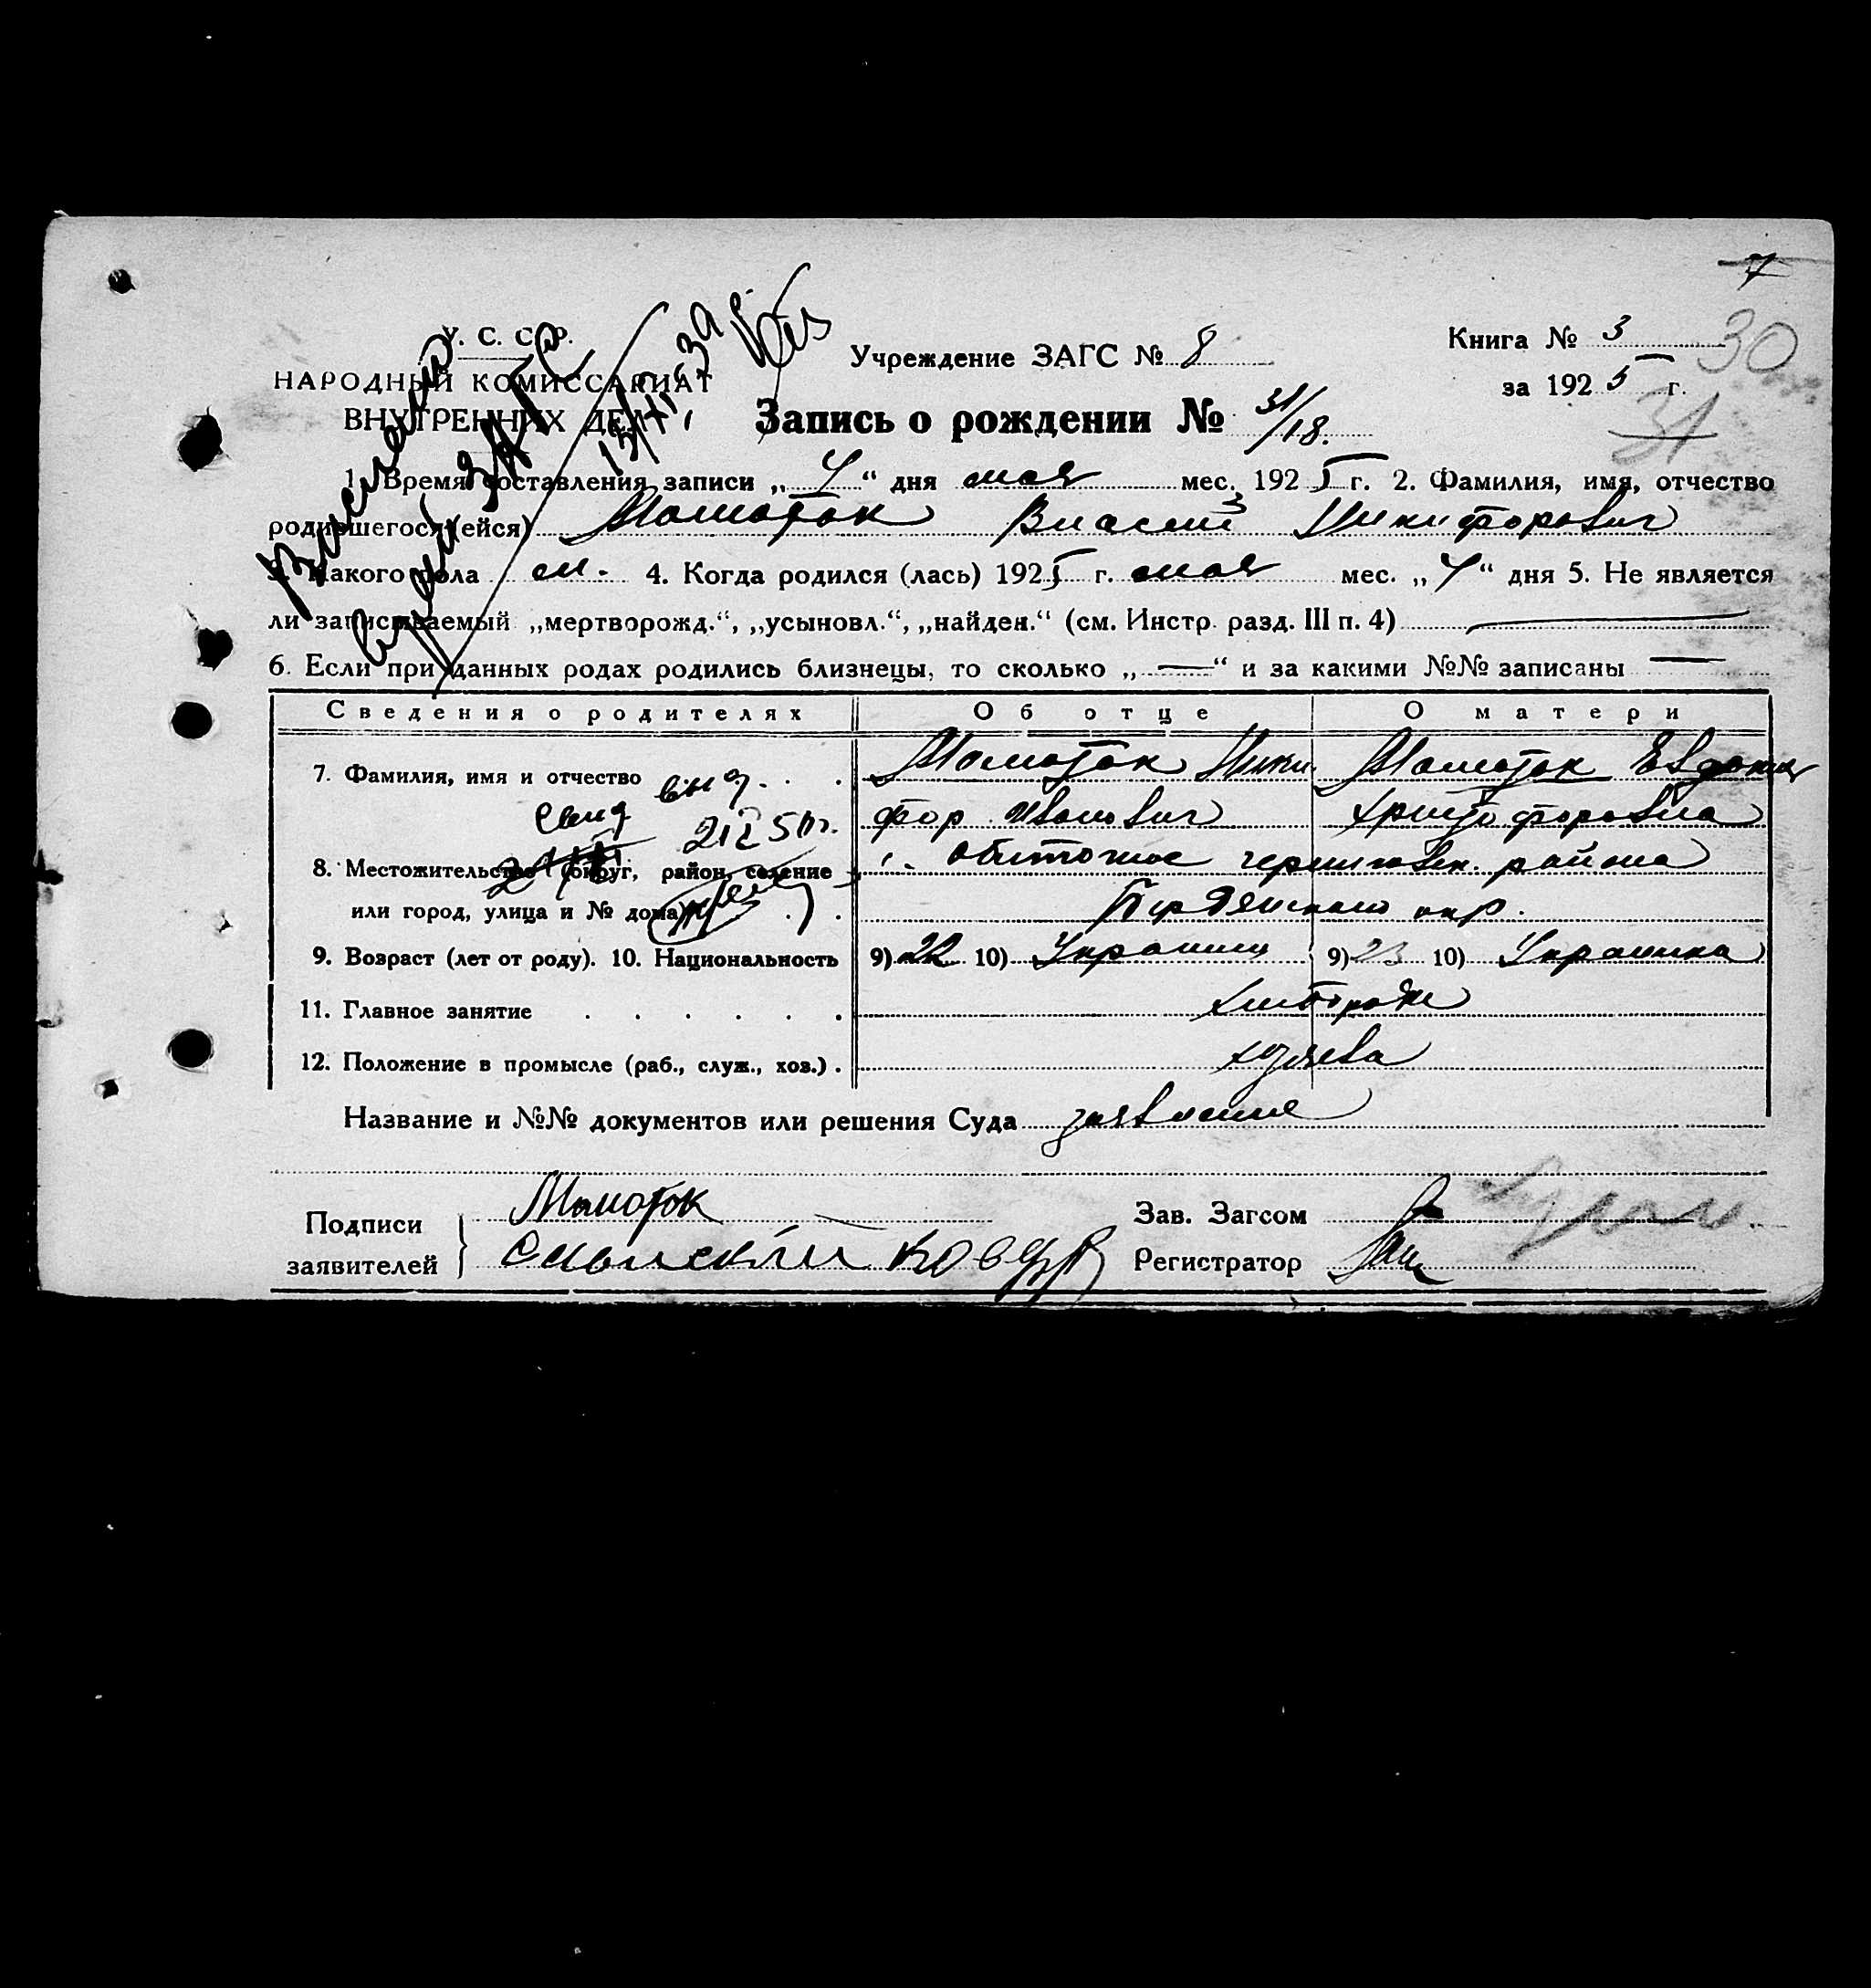 7
У. С. С. Р.
НАРОДНЫЙ КОМИССАРИАТ
ВНУТРЕННИХ ДЕЛ
Учреждение ЗАГС № 8
Книга № 3
30
за 1925 г.
31
Запись о рождении № 31/18.
1. Время составления записи „4“ дня мая мес. 1925 г. 2. Фамилия, имя, отчество
родившегося (ейся) Маматок Власий Никифорович
3. Какого пола м. 4. Когда родился (лась) 1925 г. мая мес. „4“ дня 5. Не является
ли записываемый „мертворожд.“, „усыновл.“, „найден.“ (см. Инстр. разд. III п. 4) —
6. Если при данных родах родились близнецы, то сколько „—“ и за какими №№ записаны —
Сведения о родителях Об отце О матери
7. Фамилия, имя и отчество . . . Маматок Ники- Маматок Евдокия
фор Иванович Христофоровна
8. Местожительство (округ, район, селение с. Обиточное черниговск. района
или город, улица и № дома) . . Бердянского окр.
9. Возраст (лет от роду). 10. Национальность 9) 22 10) Украинец 9) 23 10) Украинка
11. Главное занятие . . . . . . хлебороби
12. Положение в промысле (раб., служ., хоз.) . хозяева
Название и №№ документов или решения Суда заявление
Подписи Маматок Зав. Загсом
заявителей Регистратор